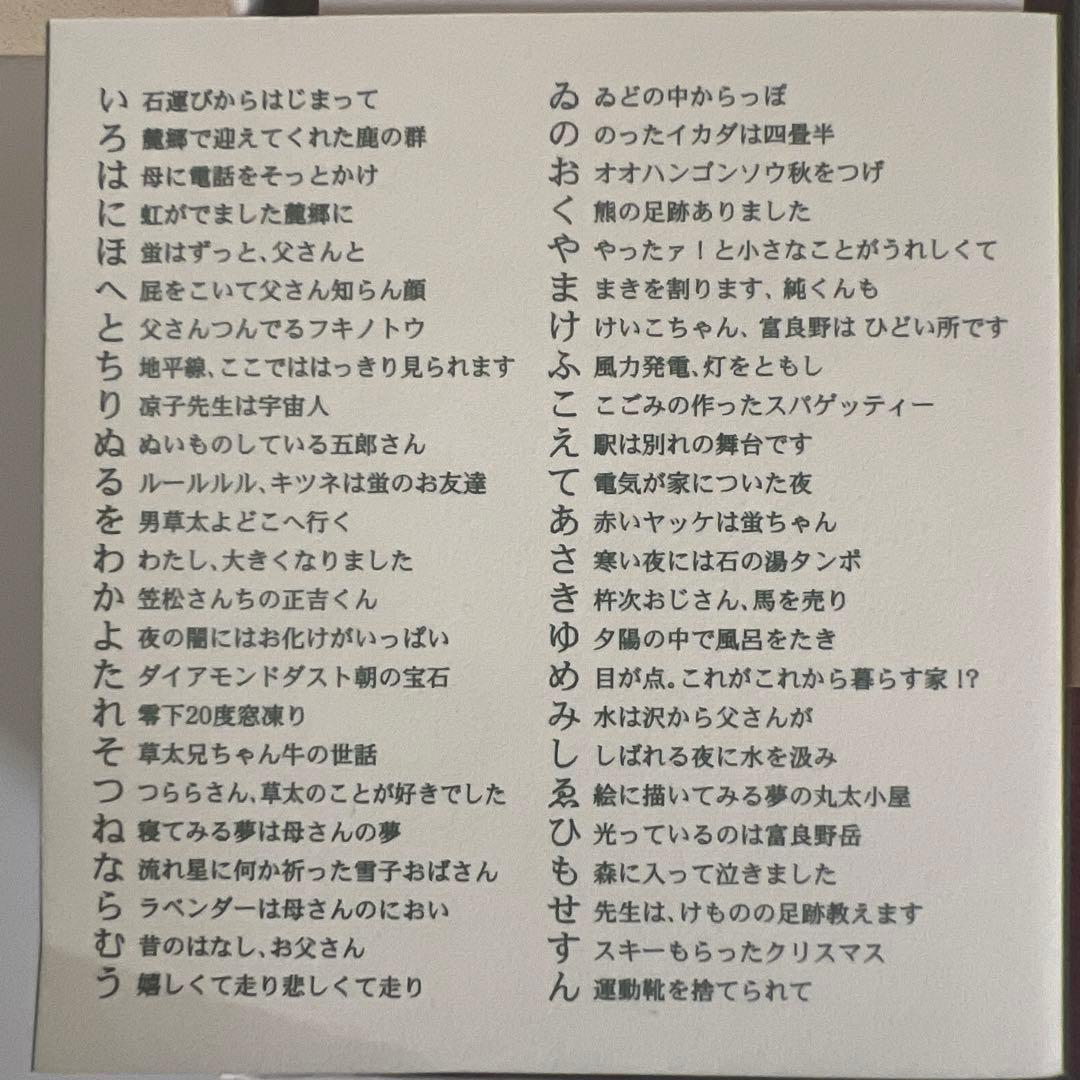 い 石運びからはじまって
ろ 麓郷で迎えてくれた鹿の群
は 母に電話をそっとかけ
に 虹がでました麓郷に
ほ 蛍はずっと、父さんと
へ 屁をこいて父さん知らん顔
と 父さんつんでるフキノトウ
ち 地平線、ここでははっきり見られます
り 凉子先生は宇宙人
ぬ ぬいものしている五郎さん
る ルールルル、キツネは蛍のお友達
を 男草太よどこへ行く
わ わたし、大きくなりました
か 笠松さんちの正吉くん
よ 夜の闇にはお化けがいっぱい
た ダイアモンドダスト朝の宝石
れ 零下20度窓凍り
そ 草太兄ちゃん牛の世話
つ つららさん、草太のことが好きでした
ね 寝てみる夢は母さんの夢
な 流れ星に何か祈った雪子おばさん
ら ラベンダーは母さんのにおい
む 昔のはなし、お父さん
う 嬉しくて走り悲しくて走り
ゐ ゐどの中からっぽ
の のったイカダは四畳半
お オオハンゴンソウ秋をつげ
く 熊の足跡ありました
や やったァ！と小さなことがうれしくて
ま まきを割ります、純くんも
け けいこちゃん、富良野は ひどい所です
ふ 風力発電、灯をともし
こ こごみの作ったスパゲッティー
え 駅は別れの舞台です
て 電気が家についた夜
あ 赤いヤッケは蛍ちゃん
さ 寒い夜には石の湯タンポ
き 杵次おじさん、馬を売り
ゆ 夕陽の中で風呂をたき
め 目が点。これがこれから暮らす家!?
み 水は沢から父さんが
し しばれる夜に水を汲み
ゑ 絵に描いてみる夢の丸太小屋
ひ 光っているのは富良野岳
も 森に入って泣きました
せ 先生は、けものの足跡教えます
す スキーもらったクリスマス
ん 運動靴を捨てられて